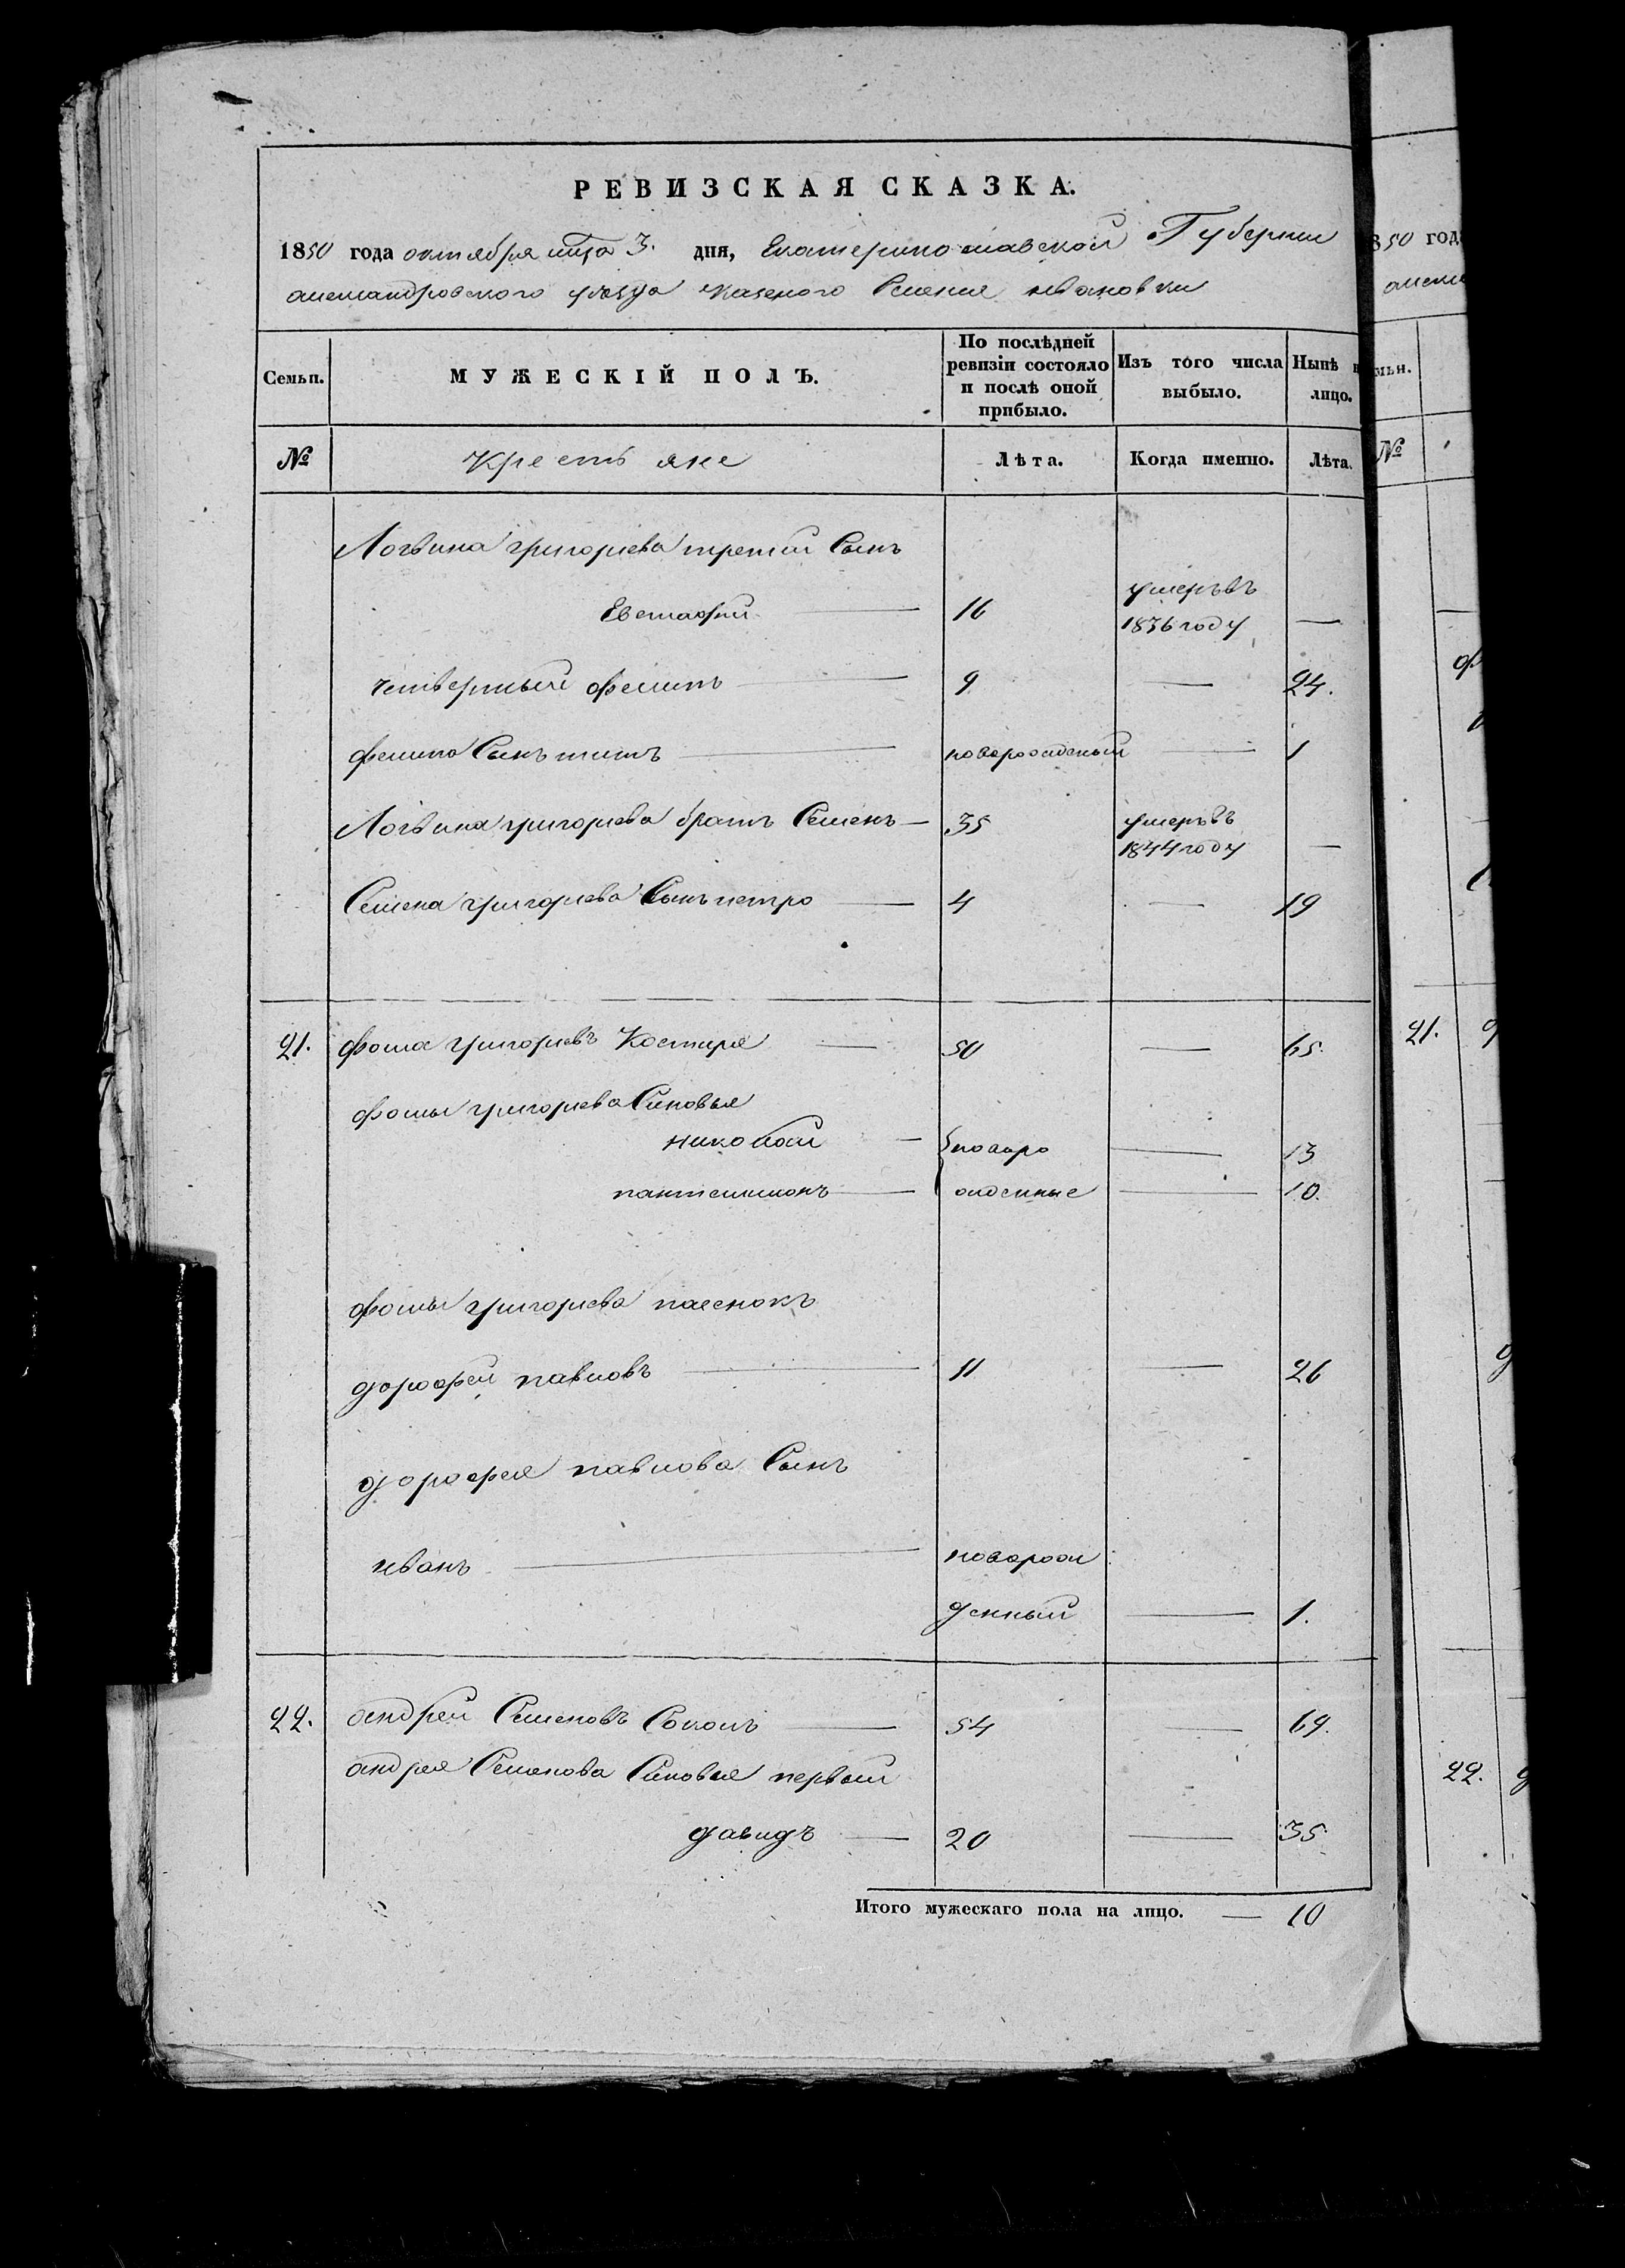 РЕВИЗСКАЯ СКАЗКА.
1850 года октября мца 3. дня, Екатеринославской Губернии
александровского уезда казеного Селения ивановки
Семьи. МУЖЕСКІЙ ПОЛЪ. По послѣдней ревизіи состояло и послѣ оной прибыло. Изъ того числа выбыло. Нынѣ н лицо.
№ Крестьяне Лѣта. Когда именно. Лѣта.
Логвина григориева третий Сынъ
Евстафий 16 умеръ въ 1836 году —
четвертый филипъ 9 — 24.
филипа Сынъ титъ новорожденый — 1
Логвина григориева братъ Семенъ 35 умеръ въ 1844 году —
Семена григориева Сынъ петро 4 — 19
21. фома григориевъ Костыря 50 — 65.
фомы григориева Синовья
николай {новоро — 13
пантелимонъ жденные — 10.
фомы григориева пасенокъ
дорофей павловъ 11 — 26
дорофея павлова Сынъ
иванъ новорож
денный — 1.
22. андрей Семеновъ Соколъ 54 — 69.
андрея Семенова Синовья первый
давидъ 20 — 35.
Итого мужескаго пола на лицо. — 10
850 год
алекса
мьи.
№
21.
22.